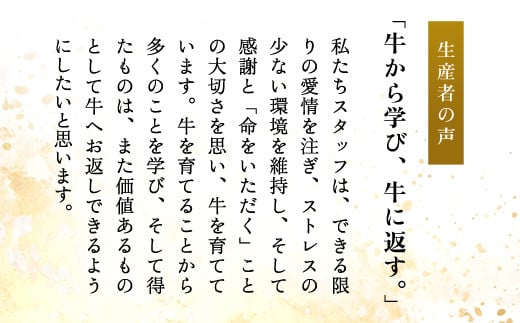 生産者の声
「牛から学び、牛に返す。」
私たちスタッフは、できる限
りの愛情を注ぎ、ストレスの
少ない環境を維持し、そして
感謝と「命をいただく」こと
の大切さを思い、牛を育てて
います。牛を育てることから
多くのことを学び、そして得
たものは、また価値あるもの
として牛へお返しできるよう
にしたいと思います。